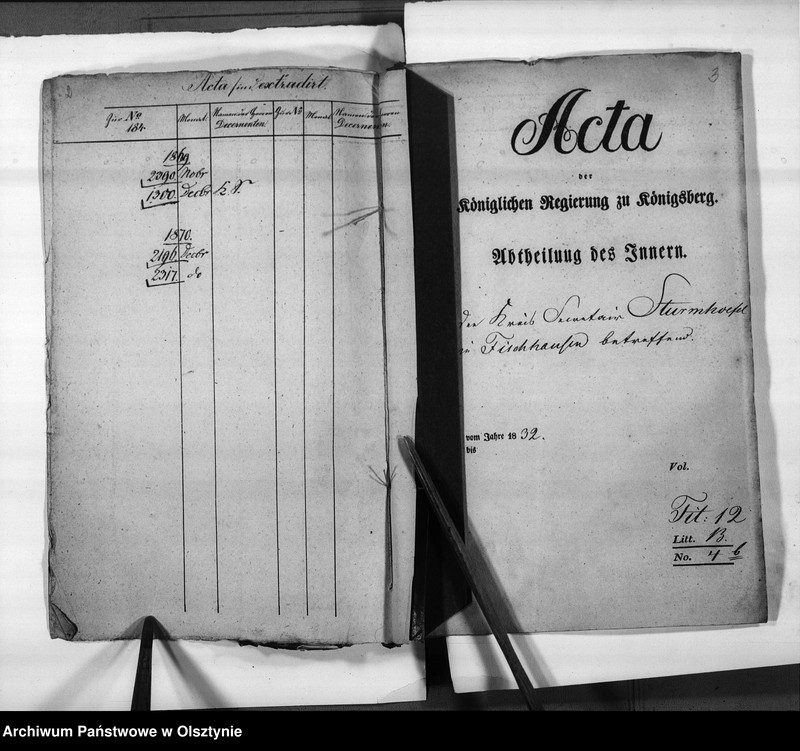 2
Acta sind extradirt.
Jour No
184
Monat.
Namen der Herren
Decernenten.
Jour No
Monat.
Namen der Herren
Decernenten.
1869.
2390. Novbr
1300. Decbr K. T.
1870.
2196. Decbr
2317. do
3
Acta
der
Königlichen Regierung zu Königsberg.
Abtheilung des Innern.
Den Kreis Secretair Sturmhoefel
zu Fischhausen betreffend.
vom Jahre 1832.
bis
Vol.
Tit: 12
Litt. B.
No. 4 b
Archiwum Państwowe w Olsztynie